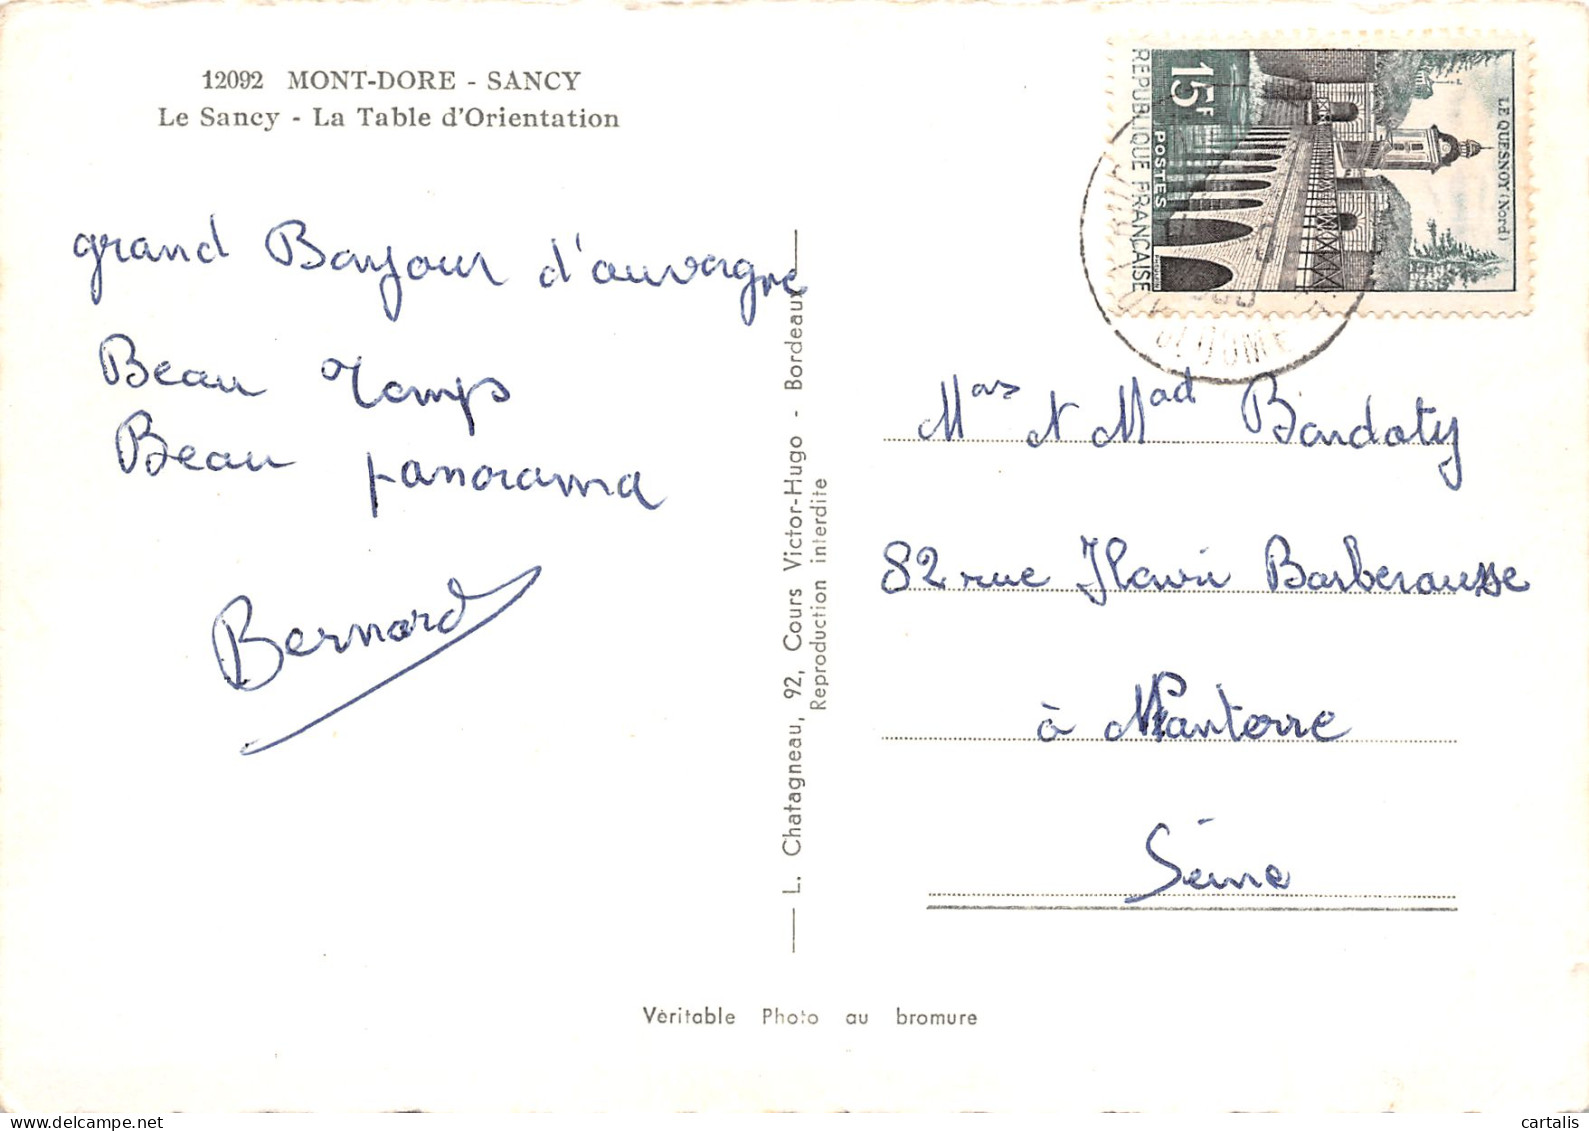 12092 MONT-DORE - SANCY
Le Sancy - La Table d'Orientation
grand Bonjour d'auvergne
Beau Temps
Beau panorama
Bernard
L. Chatagneau, 92, Cours Victor-Hugo - Bordeaux
Reproduction interdite
REPUBLIQUE FRANÇAISE
15F
POSTES
LE QUESNOY (Nord)
PUY DE DOME
Mad Bardoty
82 rue Henri Barberousse
à Nanterre
Seine
Véritable Photo au bromure
cartalis